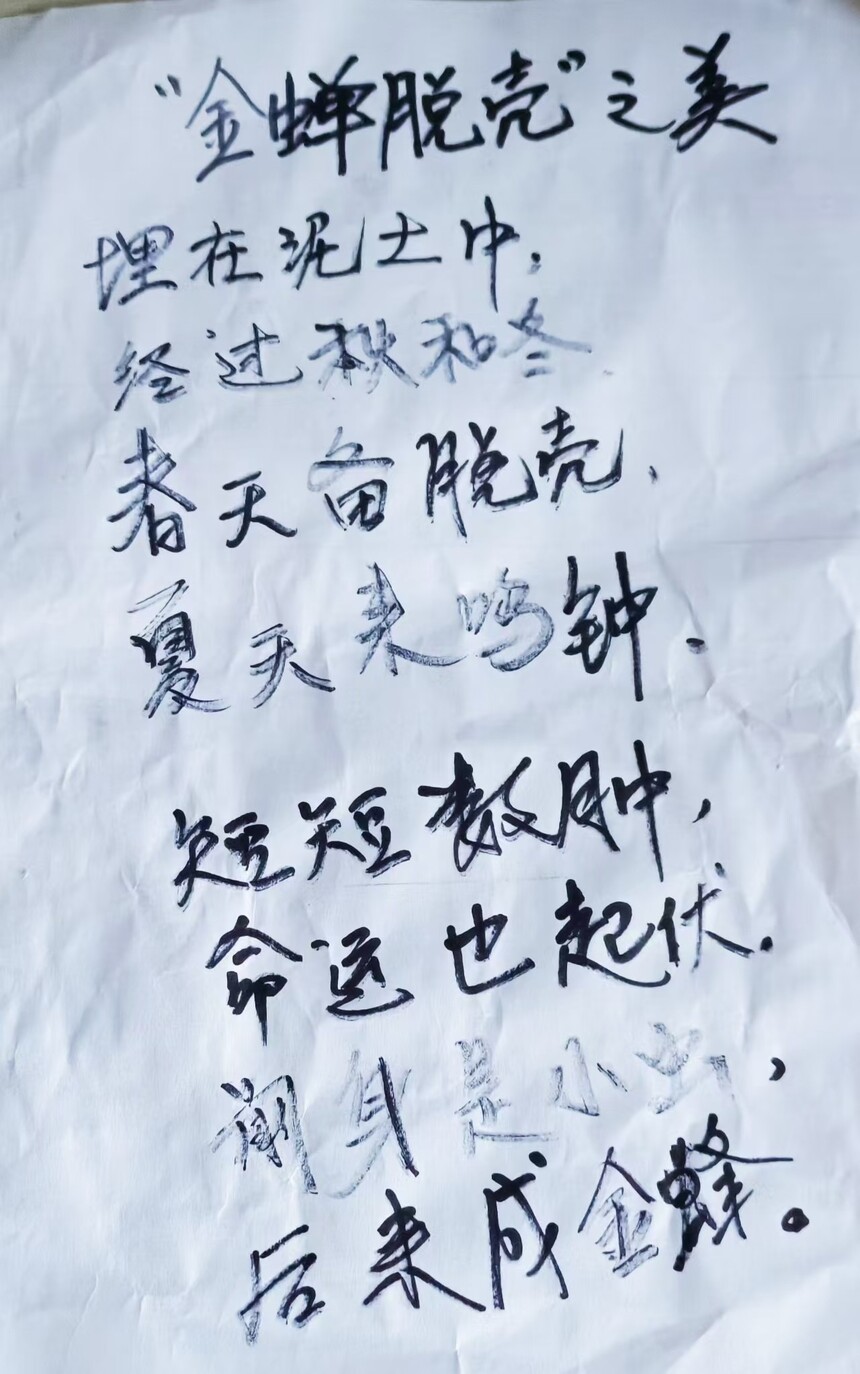 “金蝉脱壳”之美
埋在泥土中，
经过秋和冬
春天备脱壳，
夏天来鸣钟．
短短数月中，
命运也起伏．
前身是小虫，
后来成金蜂。